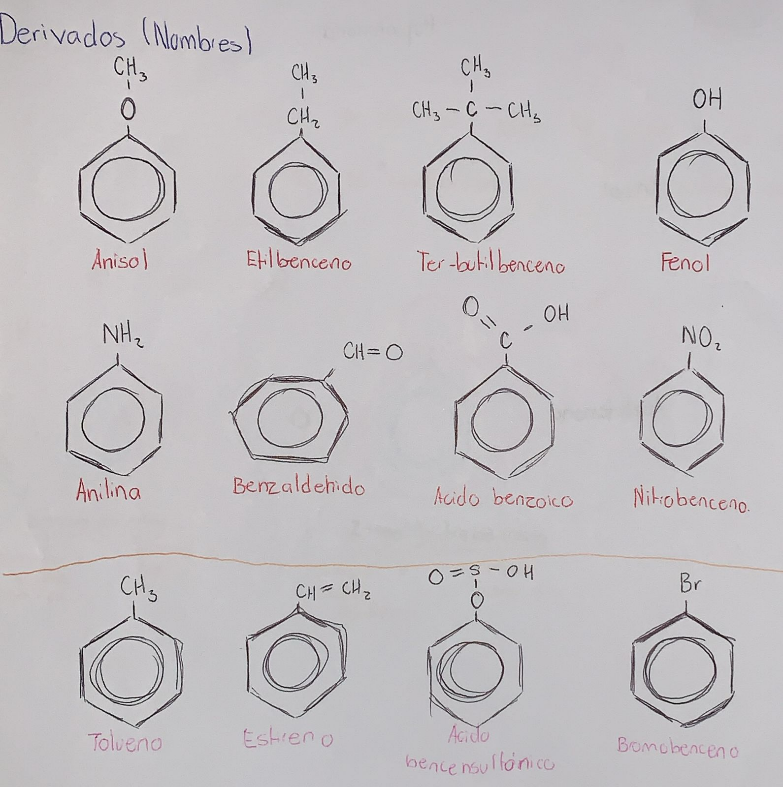 Derivados (Nombres)
CH₃
O
Anisol
CH₃
CH₂
Etilbenceno
CH₃
CH₃ - C - CH₃
Ter-butilbenceno
OH
Fenol
NH₂
Anilina
CH=O
Benzaldehido
O OH
C
Acido benzoico
NO₂
Nitrobenceno.
CH₃
Tolueno
CH=CH₂
Estireno
O=S-OH
O
Acido
bencensulfónico
Br
Bromobenceno